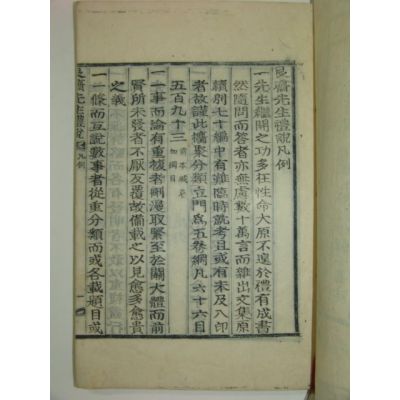 艮齋先生禮說凡例
一先生繼開之功多在性命大原不遑於禮有成書
然隨問而答者亦無慮數十萬言而雜出文集原
續別七十編中有難臨時就考且或有未及入印
者故謹此攟聚分類立門爲五卷綱凡六十六目
五百九十三
一一事而論有重複者刪漫取緊至於關大體而前
賢所未發者不厭反覆故備載之以見愈多愈貴
之義
一一條而互說數事者從重分類而或各載題目或
艮齋先生禮說 凡例 一